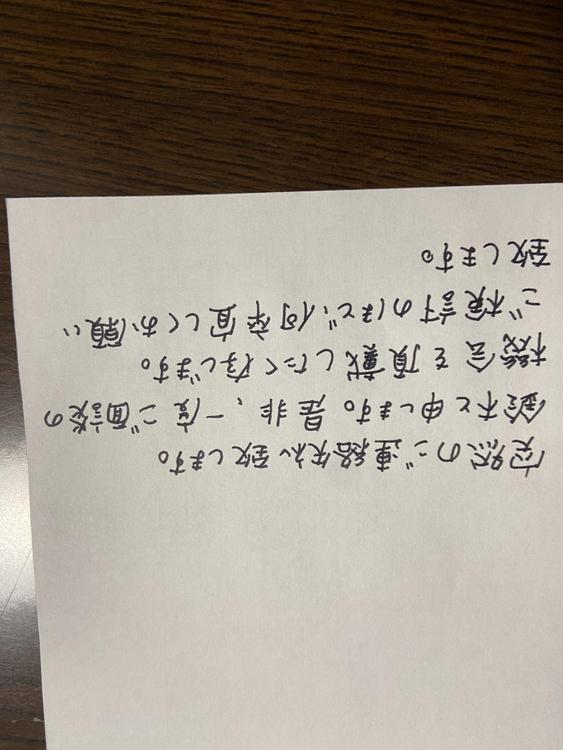 突然のご連絡失礼致します。
鈴木と申します。是非、一度ご面談の
機会を頂戴したく存じます。
ご検討のほど、何卒宜しくお願い
致します。